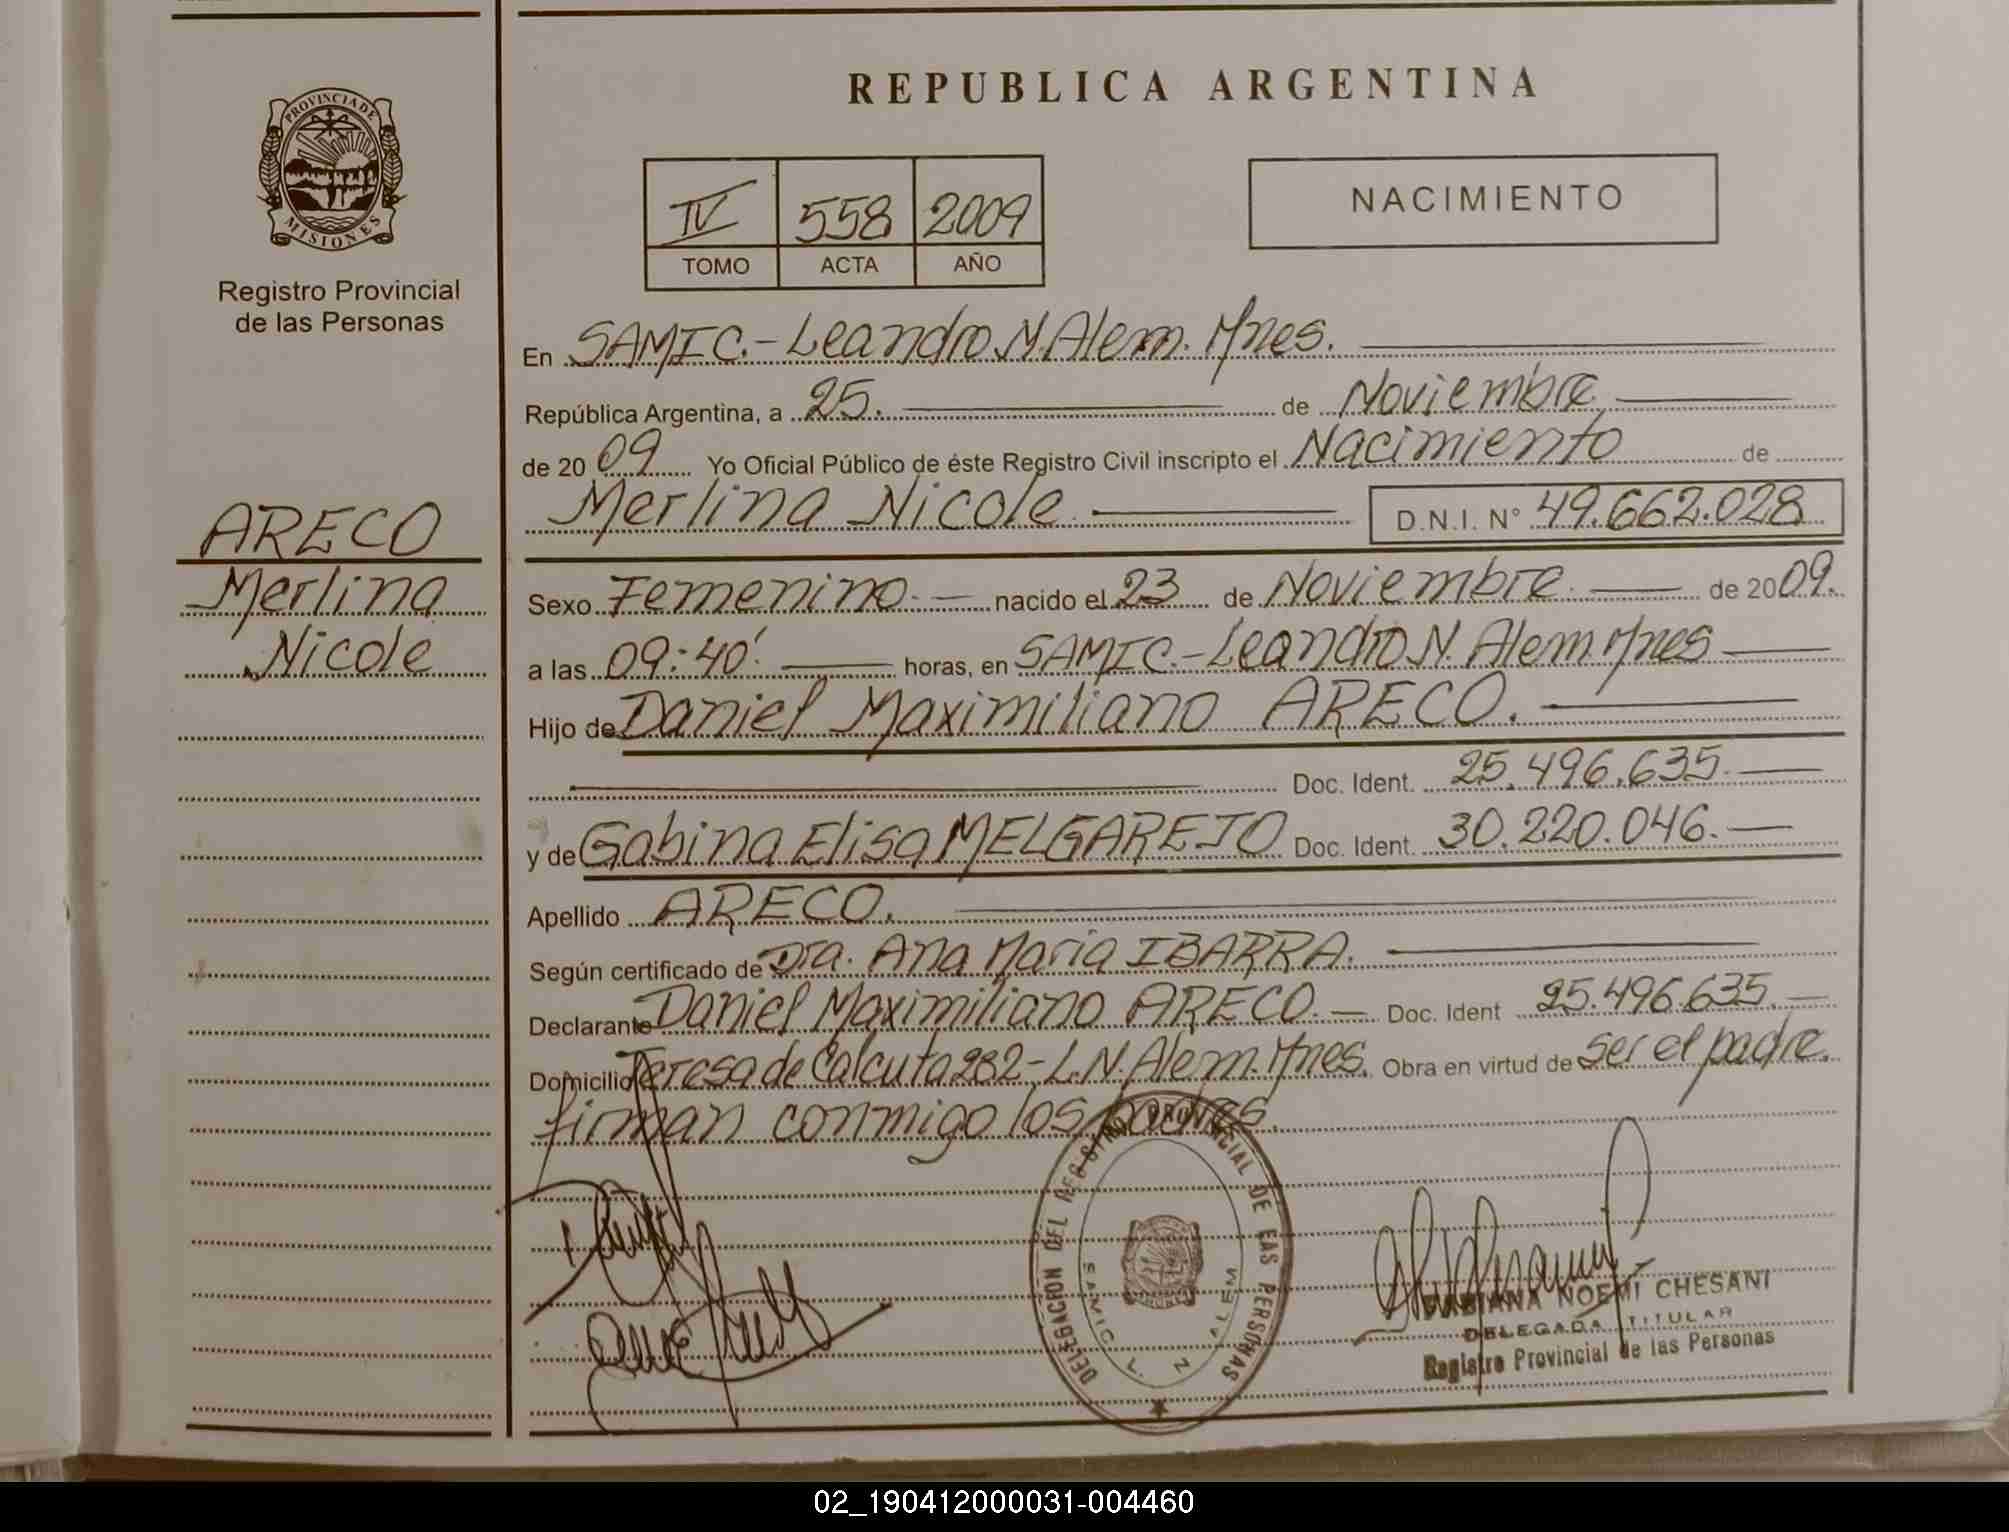 REPUBLICA ARGENTINA
PROVINCIA DE
MISIONES
Registro Provincial
de las Personas
IV 558 2009
TOMO ACTA AÑO
NACIMIENTO
En SAMIC.- Leandro N. Alem. Mnes.
República Argentina, a 25. de Noviembre
de 2009 Yo Oficial Público de éste Registro Civil inscripto el Nacimiento de
Merlina Nicole D.N.I. N° 49.662.028
ARECO
Merlina
Nicole
Sexo Femenino.- nacido el 23 de Noviembre. de 2009.
a las 09:40'. horas, en SAMIC.- Leandro N. Alem. Mnes
Hijo de Daniel Maximiliano ARECO.
Doc. Ident. 25.496.635.
y de Gabina Elisa MELGAREJO Doc. Ident. 30.220.046.
Apellido ARECO.
Según certificado de Dra. Ana María IBARRA.
Declarante Daniel Maximiliano ARECO. Doc. Ident 25.496.635.
Domicilio Teresa de Calcuta 282- L.N. Alem. Mnes. Obra en virtud de Ser el padre.
firman conmigo los padres.
DELEGACION DEL REGISTRO PROVINCIAL DE LAS PERSONAS
SAMIC L. N. ALEM
FABIANA NOEMI CHESANI
DELEGADA TITULAR
Registro Provincial de las Personas
02_190412000031-004460